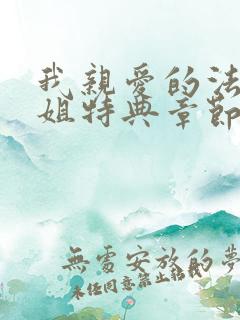 我親愛的法
姐特典章節
無處安放的夢
未任同意禁止轉載